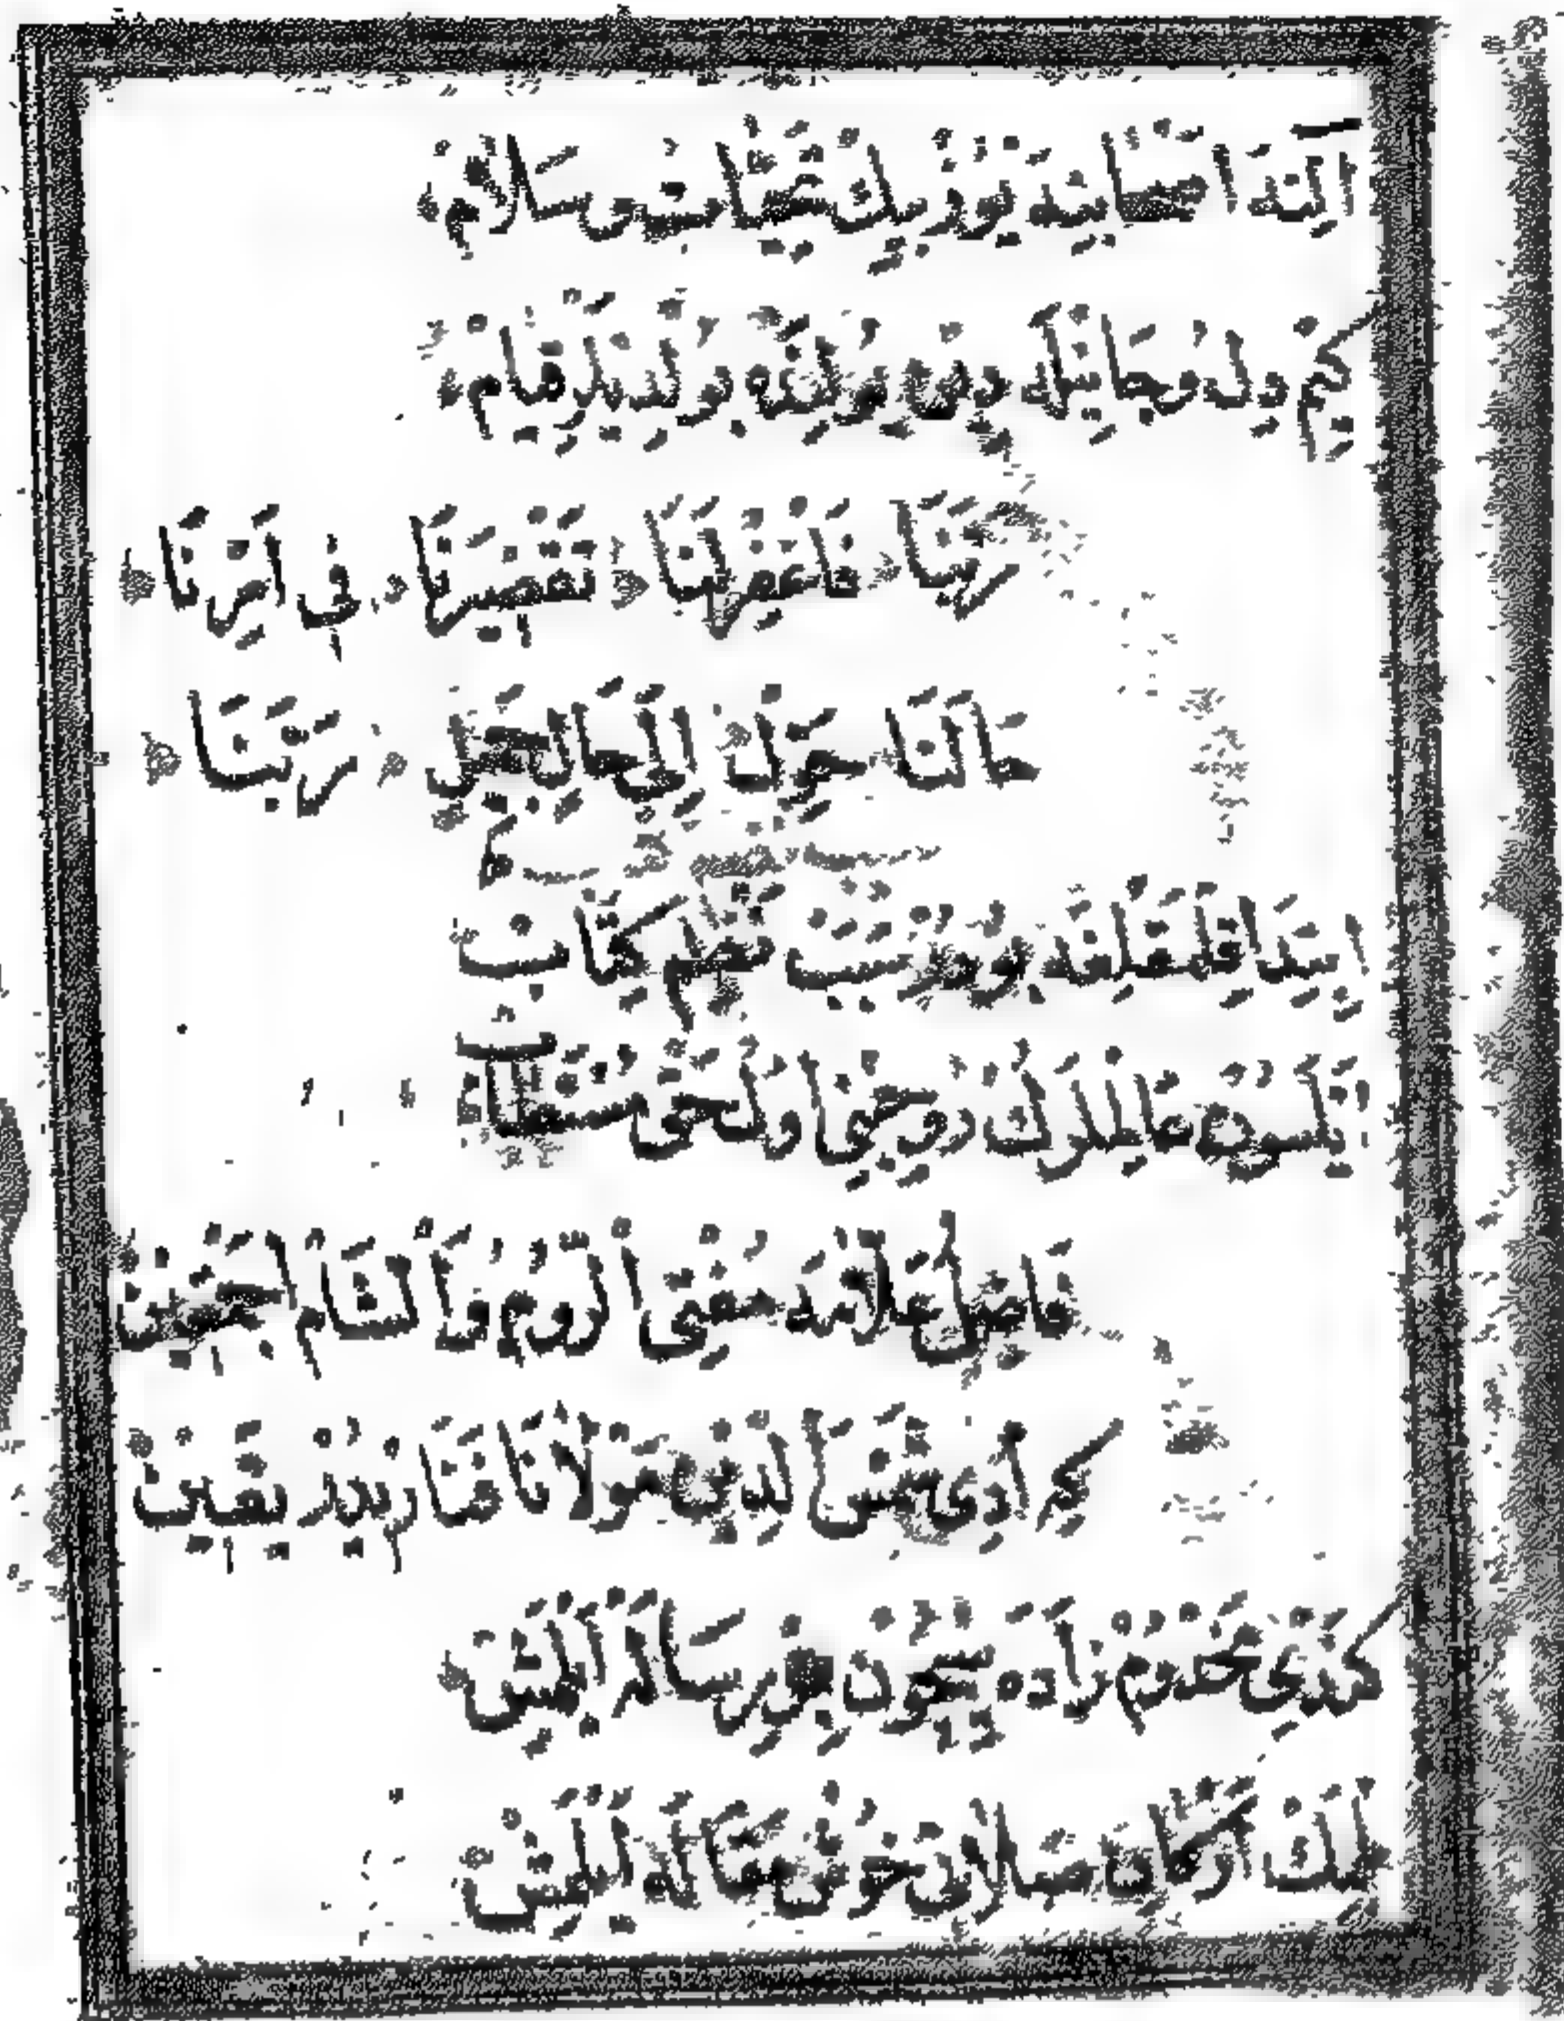 اَلِنَه اَصْحَابِنَه يُوزْ بِيكْ تَحِيَّاتْ و سَلَامْ
كِيمْ دِلُ و جَانِيلَه دِينْ يُولِنْدَه بُولَرْدِيلَرْ قِيَامْ
رَبَّنَا فَاغْفِرْلَنَا تَقْصِيرَنَا فِي اَمْرِنَا
حَالَنَا حَوِّلْ اِلَى الْحَالِ الْجَمِيلِ رَبَّنَا
اِبْتِدَا قِلْمَقْلِغَه بُودُرْ سَبَبْ نَظْمِ كِتَابْ
دِكْلَسُونْ عَالِمْلَرِكْ رُوحِنِي اُولْ حَقِّ مُسْتَطَابْ
فَاضِلُ عَلَّامَه مُفْتِى اَلرُّومُ وَاَلشَّامْ اَجْمَعِينْ
كِمْ اَدِى شَمْسَ الدِّينِ مَوْلَانَا فَنَارِيدُرْ يَقِينْ
كَنْدِى مَخْدُومْ زَادَه سِيچُونْ بِرْ رِسَالَه اَيْلَمِشْ
اَرْكَانِ صَلَاتِى خُوشْ مَقَالَه اَيْلَمِشْ